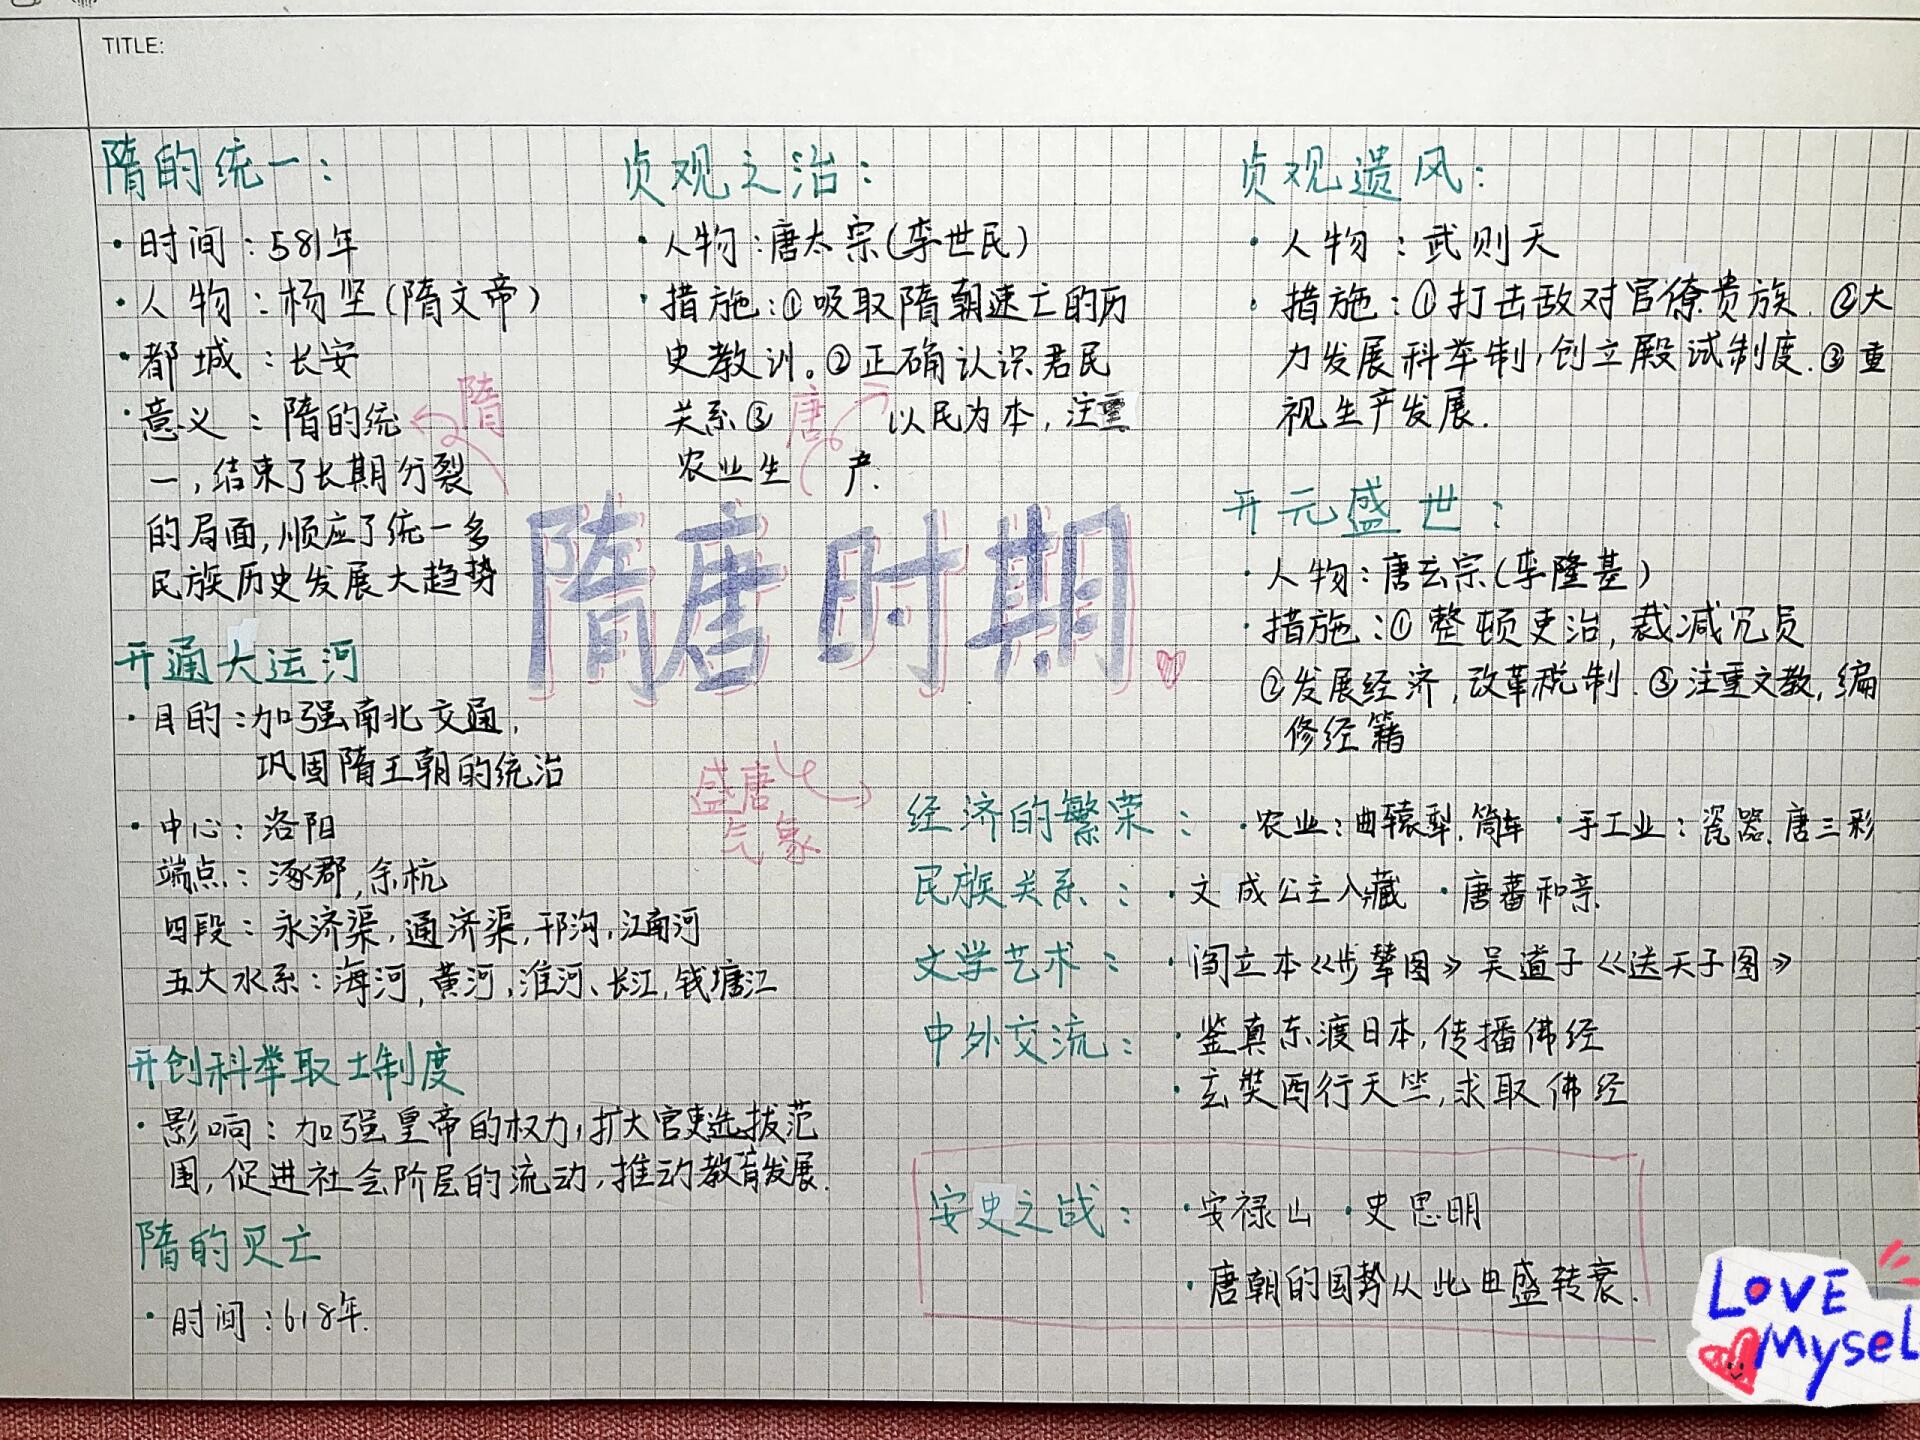 TITLE:
隋的统一：
·时间：581年
·人物：杨坚(隋文帝)
·都城：长安
·意义：隋的统
一，结束了长期分裂
的局面，顺应了统一多
民族历史发展大趋势
隋
开通大运河
·目的：加强南北交通，
巩固隋王朝的统治
·中心：洛阳
端点：涿郡，余杭
四段：永济渠，通济渠，邗沟，江南河
五大水系：海河，黄河，淮河、长江，钱塘江
开创科举取士制度
·影响：加强皇帝的权力，扩大官吏选拔范
围，促进社会阶层的流动，推动教育发展．
隋的灭亡
·时间：618年．
贞观之治：
·人物：唐太宗(李世民)
·措施：①吸取隋朝速亡的历
史教训。②正确认识君民
关系③以民为本，注重
农业生产．
唐
隋唐时期
贞观遗风：
·人物：武则天
·措施：①打击敌对官僚贵族．②大
力发展科举制，创立殿试制度．③重
视生产发展．
开元盛世：
·人物：唐玄宗(李隆基)
·措施：①整顿吏治，裁减冗员
②发展经济，改革税制．③注重文教，编
修经籍
盛唐
气象
经济的繁荣：·农业：曲辕犁，筒车 ·手工业：瓷器、唐三彩
民族关系：·文成公主入藏 ·唐蕃和亲
文学艺术：·阎立本《步辇图》吴道子《送天子图》
中外交流：·鉴真东渡日本，传播佛经
·玄奘西行天竺，求取佛经
安史之战：·安禄山 ·史思明
·唐朝的国势从此由盛转衰．
LOVE
Mysel